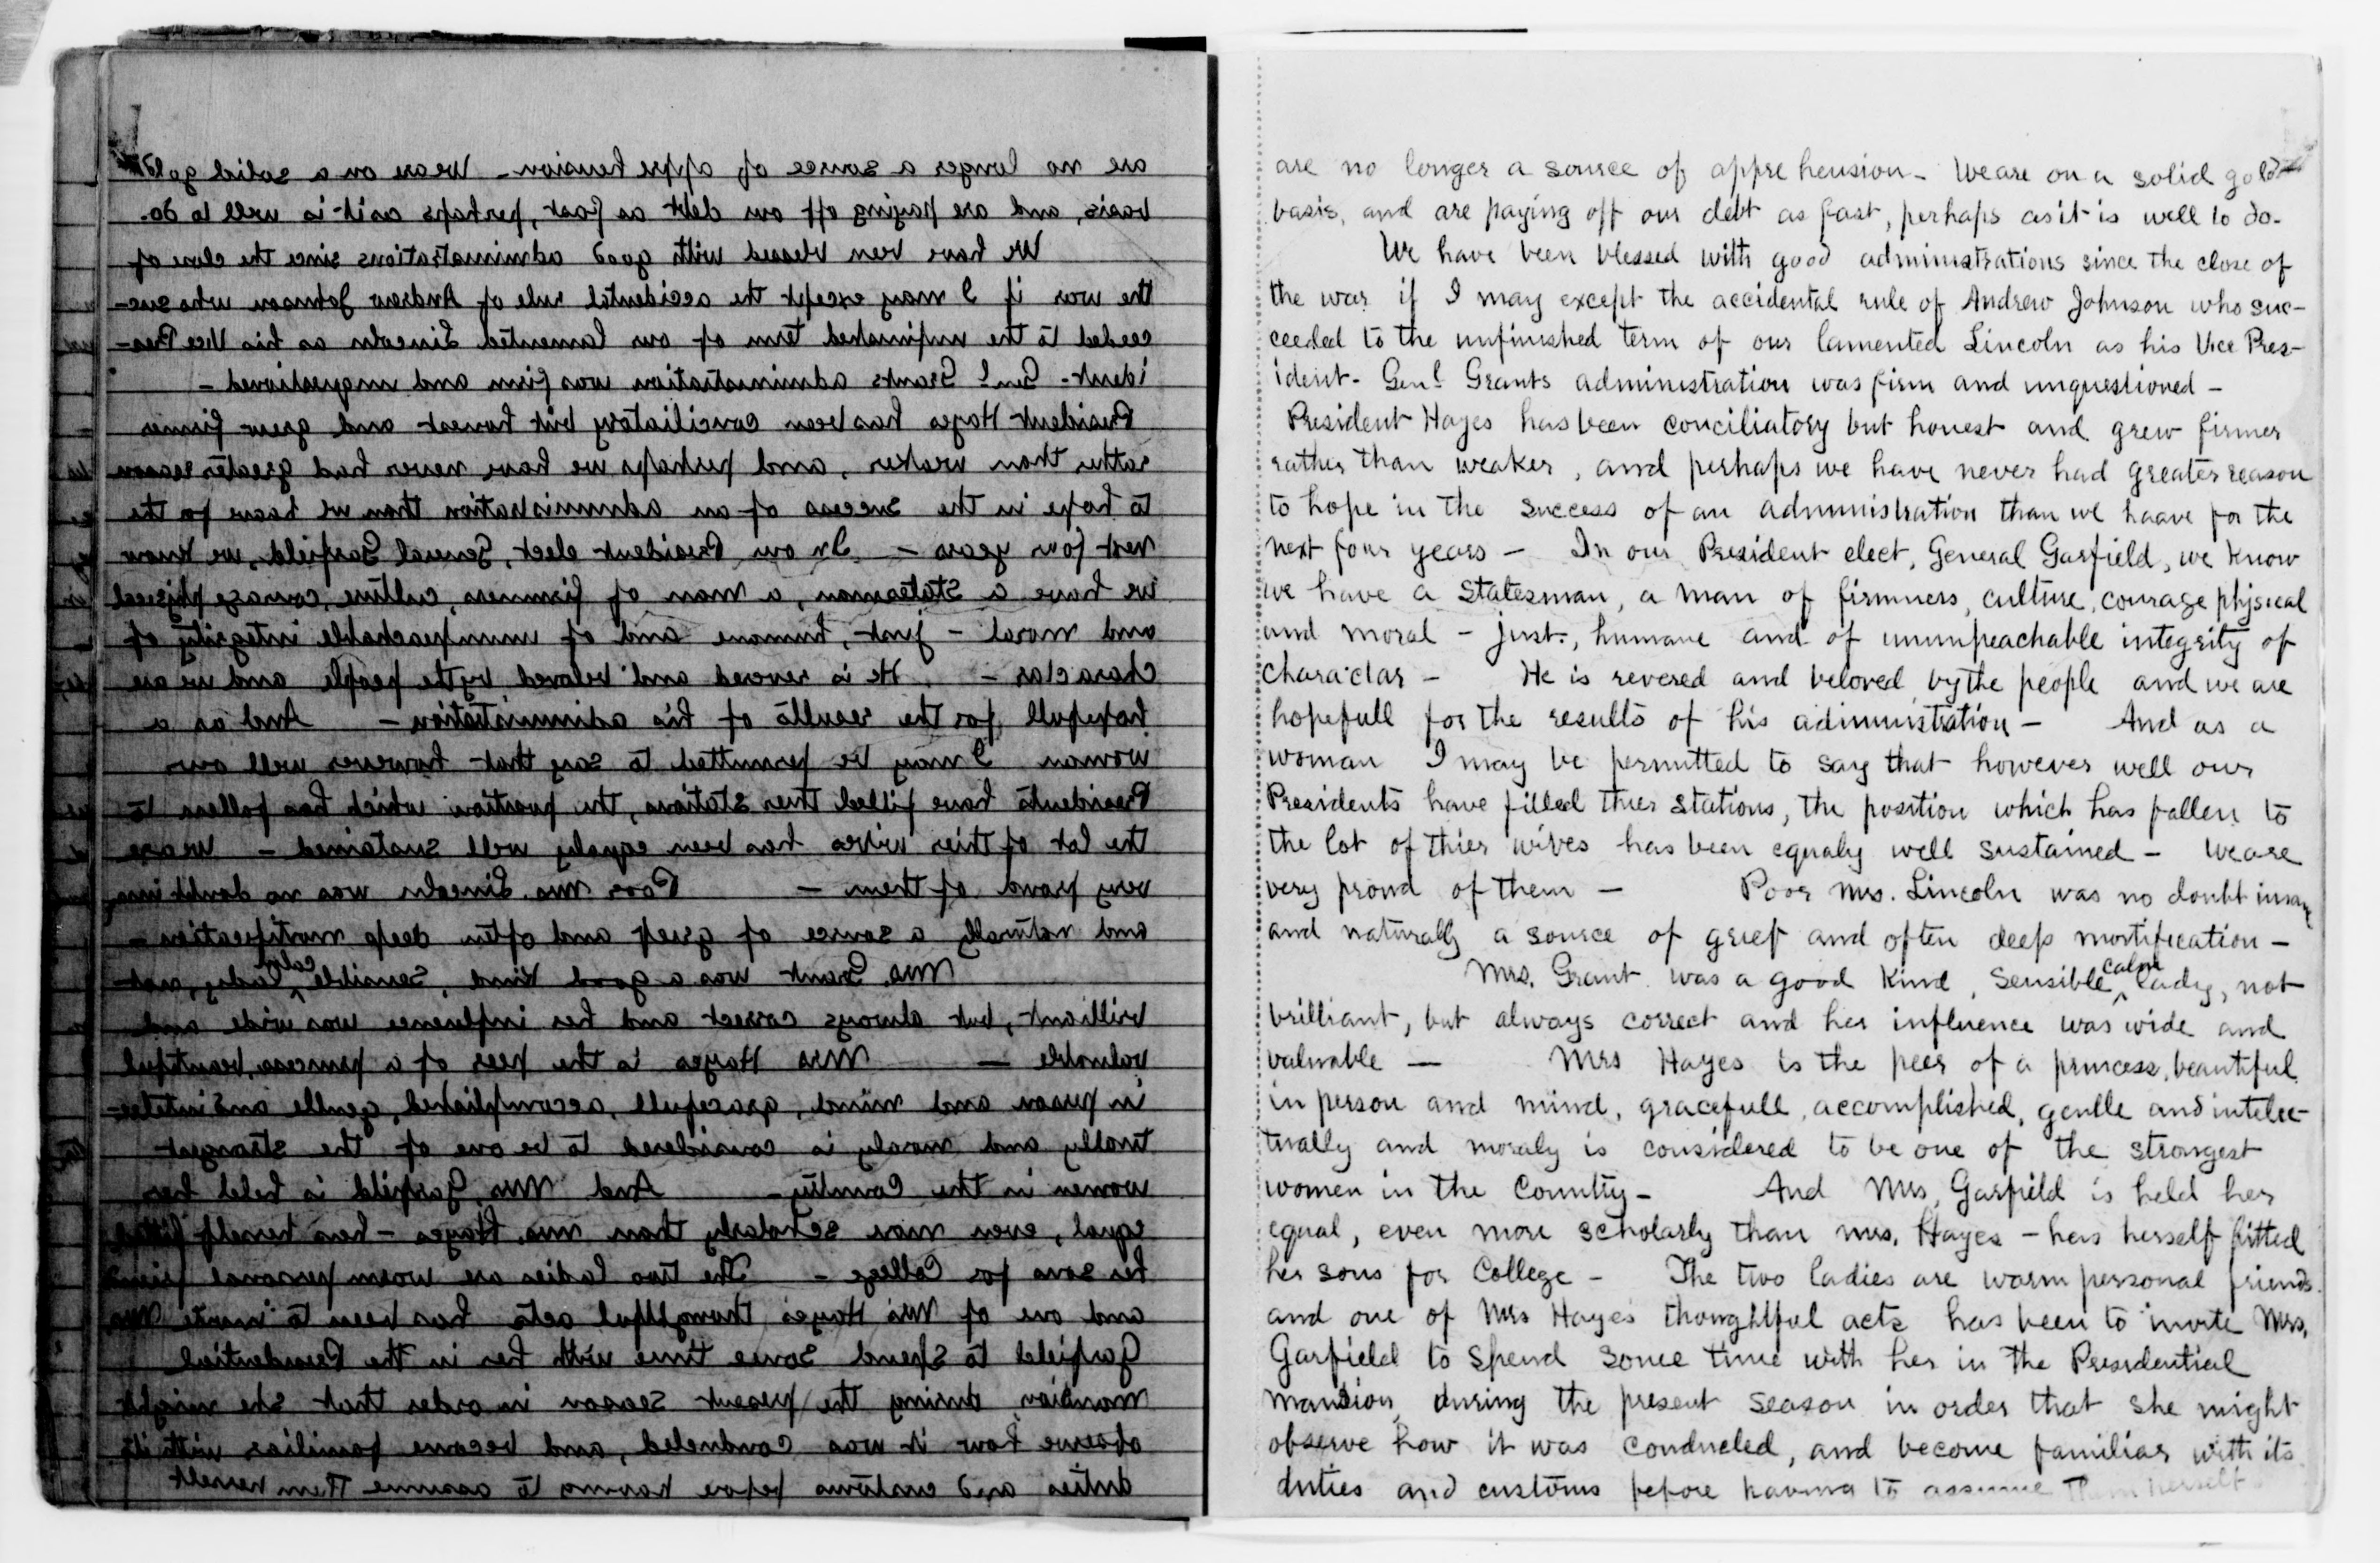 are no longer a source of apprehension - We are on a solid gold
basis, and are paying off our debt as fast, perhaps as it is well to do.
We have been blessed with good administrations since the close of
the war if I may except the accidental rule of Andrew Johnson who suc-
ceeded to the unfinished term of our lamented Lincoln as his Vice Pres-
ident. Genl Grants administration was firm and unquestioned -
President Hayes has been conciliatory but honest and grew firmer
rather than weaker, and perhaps we have never had greater reason
to hope in the success of an administration than we haave for the
next four years - In our President elect, General Garfield, we know
we have a Statesman, a man of firmness, culture, courage physical
and moral - just, humane and of unimpeachable integrity of
charactar - He is revered and beloved by the people and we are
hopefull for the results of his administration - And as a
woman I may be permitted to say that however well our
Presidents have filled thier stations, the position which has fallen to
the lot of thier wives has been equaly well sustained - We are
very proud of them - Poor Mrs. Lincoln was no doubt insane
and naturally a source of grief and often deep mortification -
Mrs. Grant was a good kind, sensible calm lady, not
brilliant, but always correct and her influence was wide and
valuable - Mrs Hayes is the peer of a princess, beautiful
in person and mind, gracefull, accomplished, gentle and intelec-
tually and moraly is considered to be one of the strongest
women in the Country - And Mrs, Garfield is held her
equal, even more scholarly than Mrs. Hayes - has herself fitted
her sons for College - The two ladies are warm personal friends
and one of Mrs Hayes thoughtful acts has been to invite Mrs.
Garfield to spend some time with her in the Presidential
mansion, during the present season in order that she might
observe how it was conducted, and become familiar with its
duties and customs before having to assume them herself